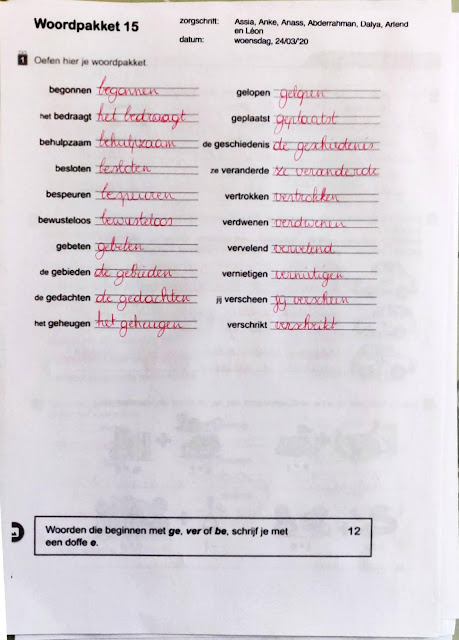 Woordpakket 15
zorgschrift: Assia, Anke, Anass, Abderrahman, Dalya, Arlend
en Léon
datum: woensdag, 24/03/'20
1 Oefen hier je woordpakket
begonnen begonnen
het bedraagt het bedraagt
behulpzaam behulpzaam
besloten besloten
bespeuren bespeuren
bewusteloos bewusteloos
gebeten gebeten
de gebieden de gebieden
de gedachten de gedachten
het geheugen het geheugen
gelopen gelopen
geplaatst geplaatst
de geschiedenis de geschiedenis
ze veranderde ze veranderde
vertrokken vertrokken
verdwenen verdwenen
vervelend vervelend
vernietigen vernietigen
jij verscheen jij verscheen
verschrikt verschrikt
Woorden die beginnen met ge, ver of be, schrijf je met 12
een doffe e.